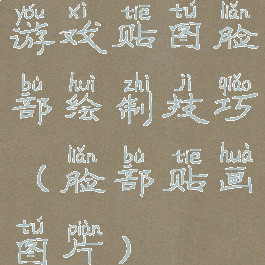 yóu xì tiē tú liǎn
游戏贴图脸
bù huì zhì jì qiǎo
部绘制技巧
liǎn bù tiē huà
（脸部贴画
tú piàn
图片）